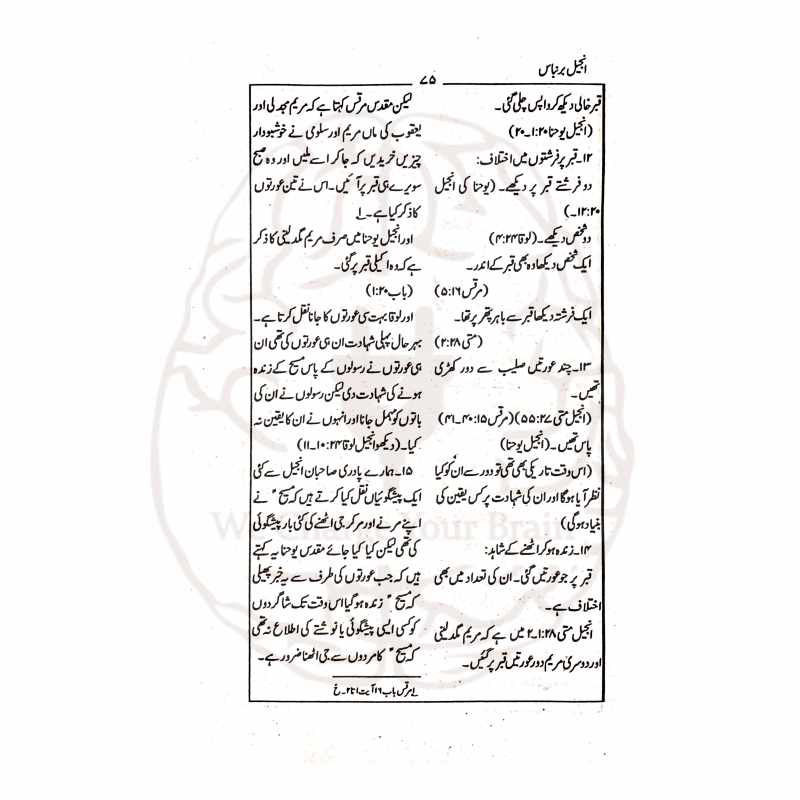 انجیل برنباس
۷۵
قبر خالی دیکھ کر واپس چلی گئی۔
(انجیل یوحنا ۲۰:۱۔۲۰)
۱۲۔ قبر پر فرشتوں میں اختلاف:
دو فرشتے قبر پر دیکھے۔ (یوحنا کی انجیل
۱۲:۲۰۔)
دو شخص دیکھے۔ (لوقا ۴:۲۴)
ایک شخص دیکھا وہ بھی قبر کے اندر۔
(مرقس ۵:۱۶)
ایک فرشتہ دیکھا قبر سے باہر پتھر پر تھا۔
(متی ۲:۲۸)
۱۳۔ چند عورتیں صلیب سے دور کھڑی
تھیں۔
(انجیل متی ۵۵:۲۷) (مرقس ۱۵:۴۰۔۴۱)
پاس تھیں۔ (انجیل یوحنا)
(اس وقت تاریکی بھی تھی تو دور سے ان کو کیا
نظر آیا ہوگا اور ان کی شہادت پر کس یقین کی
بنیاد ہوگی)
۱۴۔ زندہ ہو کر اٹھنے کے شاہد:
قبر پر جو عورتیں گئی۔ ان کی تعداد میں بھی
اختلاف ہے۔
انجیل متی ۲۸:۱۔۲ میں ہے کہ مریم مگدلینی
اور دوسری مریم دو عورتیں قبر پر گئیں۔
لیکن مقدس مرقس کہتا ہے کہ مریم مجدلی اور
یعقوب کی ماں مریم اور سلومی نے خوشبودار
چیزیں خریدیں کہ جا کر اسے ملیں اور وہ صبح
سویرے ہی قبر پر آئیں۔ اس نے تین عورتوں
کا ذکر کیا ہے۔ ۱؎
اور انجیل یوحنا میں صرف مریم مگدلینی کا ذکر
ہے کہ وہ اکیلی قبر پر گئی۔
(باب ۱:۲۰)
اور لوقا بہت سی عورتوں کا جانا نقل کرتا ہے۔
بہر حال پہلی شہادت ان ہی عورتوں کی تھی ان
ہی عورتوں نے رسولوں کے پاس مسیح کے زندہ
ہونے کی شہادت دی لیکن رسولوں نے ان کی
باتوں کو مہمل جانا اور انہوں نے ان کا یقین نہ
کیا۔ (دیکھو انجیل لوقا ۲۴:۱۰۔۱۱)
۱۵۔ ہمارے پادری صاحبان انجیل سے کئی
ایک پیشگوئیاں نقل کیا کرتے ہیں کہ مسیحؑ نے
اپنے مرنے اور مر کر جی اٹھنے کی کئی بار پیشگوئی
کی تھی لیکن کیا کیا جائے مقدس یوحنا یہ کہتے
ہیں کہ جب عورتوں کی طرف سے یہ خبر پھیلی
کہ مسیحؑ زندہ ہو گیا اس وقت تک شاگردوں
کو کسی ایسی پیشگوئی یا نوشتے کی اطلاع نہ تھی
کہ مسیحؑ کا مردوں سے جی اٹھنا ضرور ہے۔
۱؎ مرقس باب ۱۶ آیت ۱ تا ۲۔ خ
We Change Your Brain